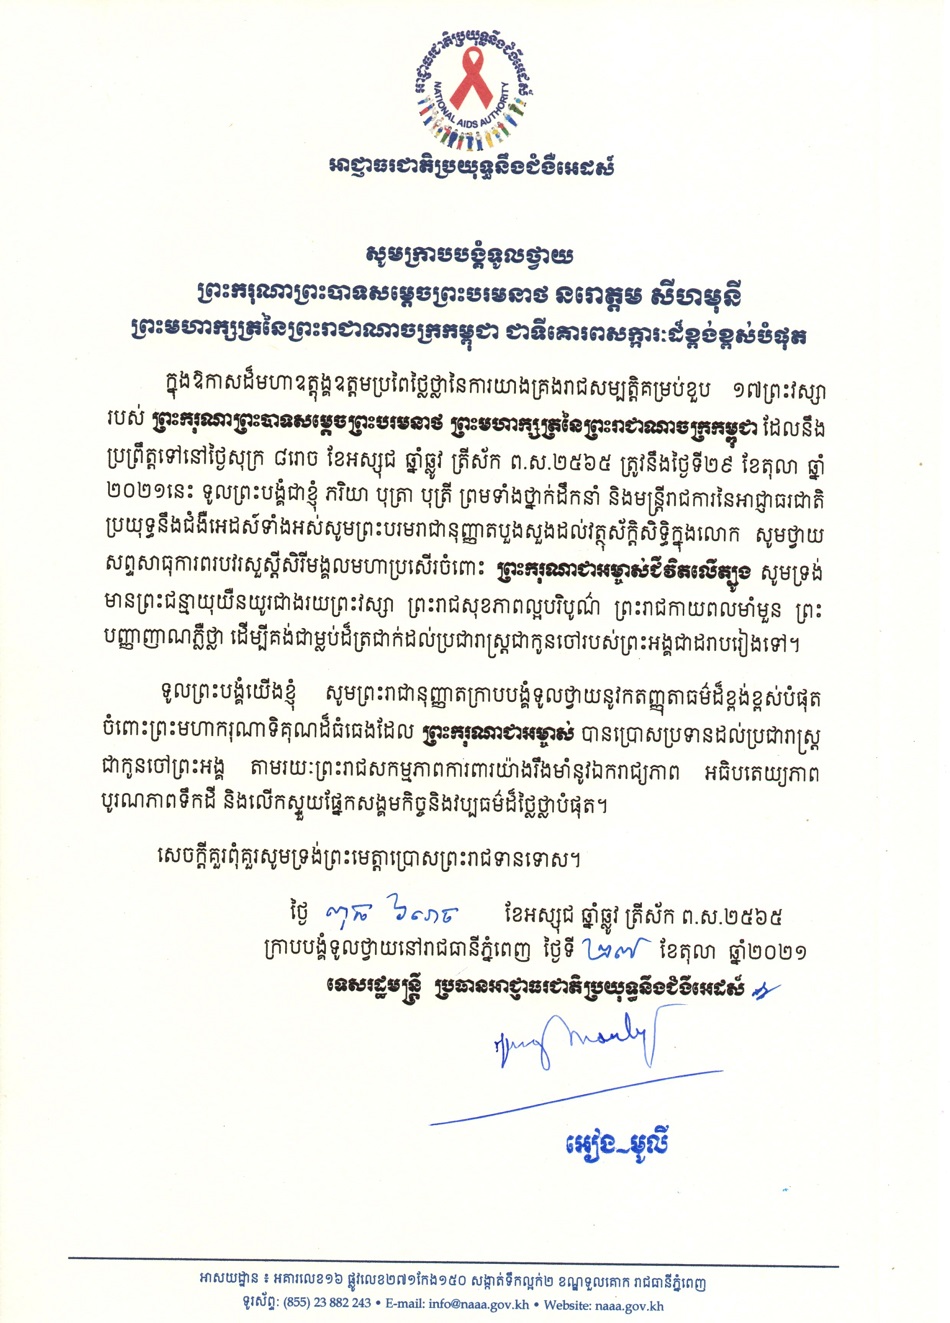 អាជ្ញាធរជាតិប្រយុទ្ធនឹងជំងឺអេដស៍
NATIONAL AIDS AUTHORITY
អាជ្ញាធរជាតិប្រយុទ្ធនឹងជំងឺអេដស៍
សូមក្រាបបង្គំទូលថ្វាយ
ព្រះករុណាព្រះបាទសម្តេចព្រះបរមនាថ នរោត្តម សីហមុនី
ព្រះមហាក្សត្រនៃព្រះរាជាណាចក្រកម្ពុជា ជាទីគោរពសក្ការៈដ៏ខ្ពង់ខ្ពស់បំផុត
ក្នុងឱកាសដ៏មហាឧត្តុង្គឧត្តមប្រពៃថ្លៃថ្លានៃការយាងគ្រងរាជសម្បត្តិគម្រប់ខួប ១៧ព្រះវស្សា
របស់ ព្រះករុណាព្រះបាទសម្តេចព្រះបរមនាថ ព្រះមហាក្សត្រនៃព្រះរាជាណាចក្រកម្ពុជា ដែលនឹង
ប្រព្រឹត្តទៅនៅថ្ងៃសុក្រ ៨រោច ខែអស្សុជ ឆ្នាំឆ្លូវ ត្រីស័ក ព.ស.២៥៦៥ ត្រូវនឹងថ្ងៃទី២៩ ខែតុលា ឆ្នាំ
២០២១នេះ ទូលព្រះបង្គំជាខ្ញុំ ភរិយា បុត្រា បុត្រី ព្រមទាំងថ្នាក់ដឹកនាំ និងមន្ត្រីរាជការនៃអាជ្ញាធរជាតិ
ប្រយុទ្ធនឹងជំងឺអេដស៍ទាំងអស់សូមព្រះបរមរាជានុញ្ញាតបួងសួងដល់វត្ថុស័ក្តិសិទ្ធិក្នុងលោក សូមថ្វាយ
សព្ទសាធុការពរបវរសួស្តីសិរីមង្គលមហាប្រសើរចំពោះ ព្រះករុណាជាអម្ចាស់ជីវិតលើត្បូង សូមទ្រង់
មានព្រះជន្មាយុយឺនយូរជាងរយព្រះវស្សា ព្រះរាជសុខភាពល្អបរិបូណ៌ ព្រះរាជកាយពលមាំមួន ព្រះ
បញ្ញាញាណភ្លឺថ្លា ដើម្បីគង់ជាម្លប់ដ៏ត្រជាក់ដល់ប្រជារាស្ត្រជាកូនចៅរបស់ព្រះអង្គជាដរាបរៀងទៅ។
ទូលព្រះបង្គំយើងខ្ញុំ សូមព្រះរាជានុញ្ញាតក្រាបបង្គំទូលថ្វាយនូវកតញ្ញុតាធម៌ដ៏ខ្ពង់ខ្ពស់បំផុត
ចំពោះព្រះមហាករុណាទិគុណដ៏ធំធេងដែល ព្រះករុណាជាអម្ចាស់ បានប្រោសប្រទានដល់ប្រជារាស្ត្រ
ជាកូនចៅព្រះអង្គ តាមរយៈព្រះរាជសកម្មភាពការពារយ៉ាងរឹងមាំនូវឯករាជ្យភាព អធិបតេយ្យភាព
បូរណភាពទឹកដី និងលើកស្ទួយផ្នែកសង្គមកិច្ចនិងវប្បធម៌ដ៏ថ្លៃថ្លាបំផុត។
សេចក្តីគួរពុំគួរសូមទ្រង់ព្រះមេត្តាប្រោសព្រះរាជទានទោស។
ថ្ងៃ ពុធ ៦រោច ខែអស្សុជ ឆ្នាំឆ្លូវ ត្រីស័ក ព.ស.២៥៦៥
ក្រាបបង្គំទូលថ្វាយនៅរាជធានីភ្នំពេញ ថ្ងៃទី ២៧ ខែតុលា ឆ្នាំ២០២១
ទេសរដ្ឋមន្ត្រី ប្រធានអាជ្ញាធរជាតិប្រយុទ្ធនឹងជំងឺអេដស៍
អៀង-មូលី
អាសយដ្ឋាន ៖ អគារលេខ១៦ ផ្លូវលេខ២៧១កែង១៥០ សង្កាត់ទឹកល្អក់២ ខណ្ឌទួលគោក រាជធានីភ្នំពេញ
ទូរស័ព្ទ: (855) 23 882 243 • E-mail: info@naaa.gov.kh • Website: naaa.gov.kh